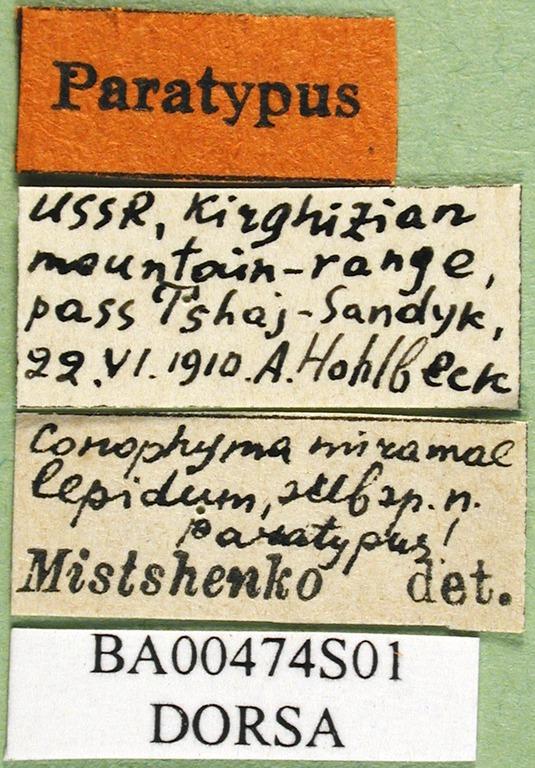 Paratypus
USSR, Kirghizian
mountain-range,
pass Tshaj-Sandyk,
22.VI.1910. A. Hohlbeck
Conophyma miramae
lepidum, subsp. n.
paratypus!
Mistshenko det.
BA00474S01
DORSA